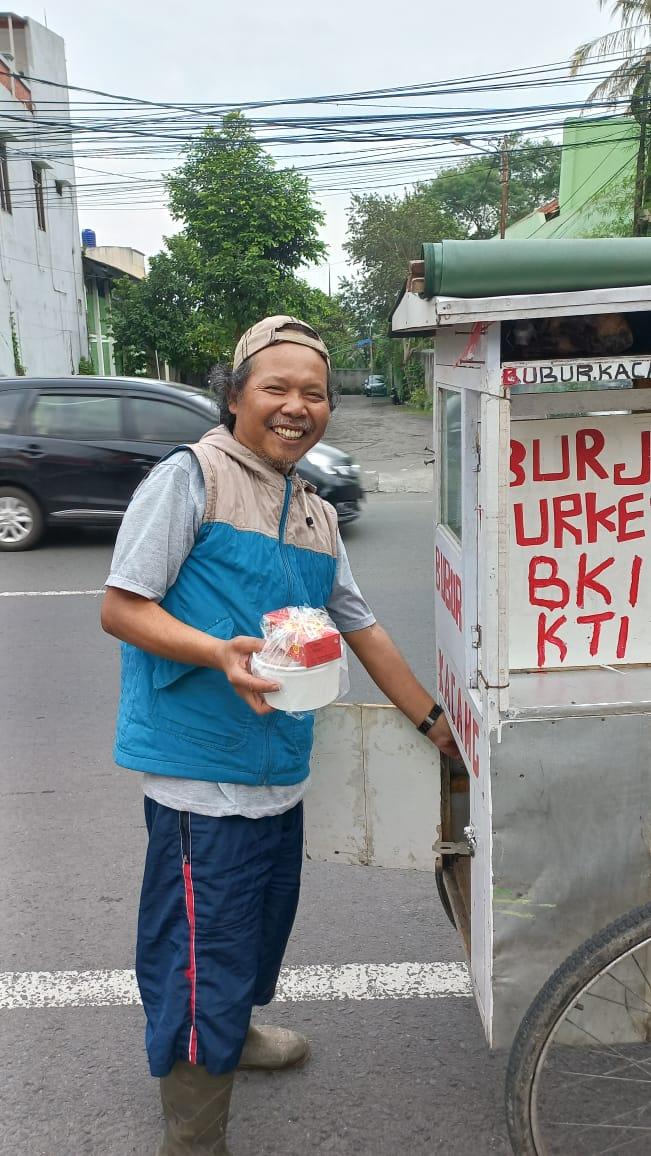 BUBUR.KACA
BURJ
URKE
BKI
KTI
BUBUR
KACANG